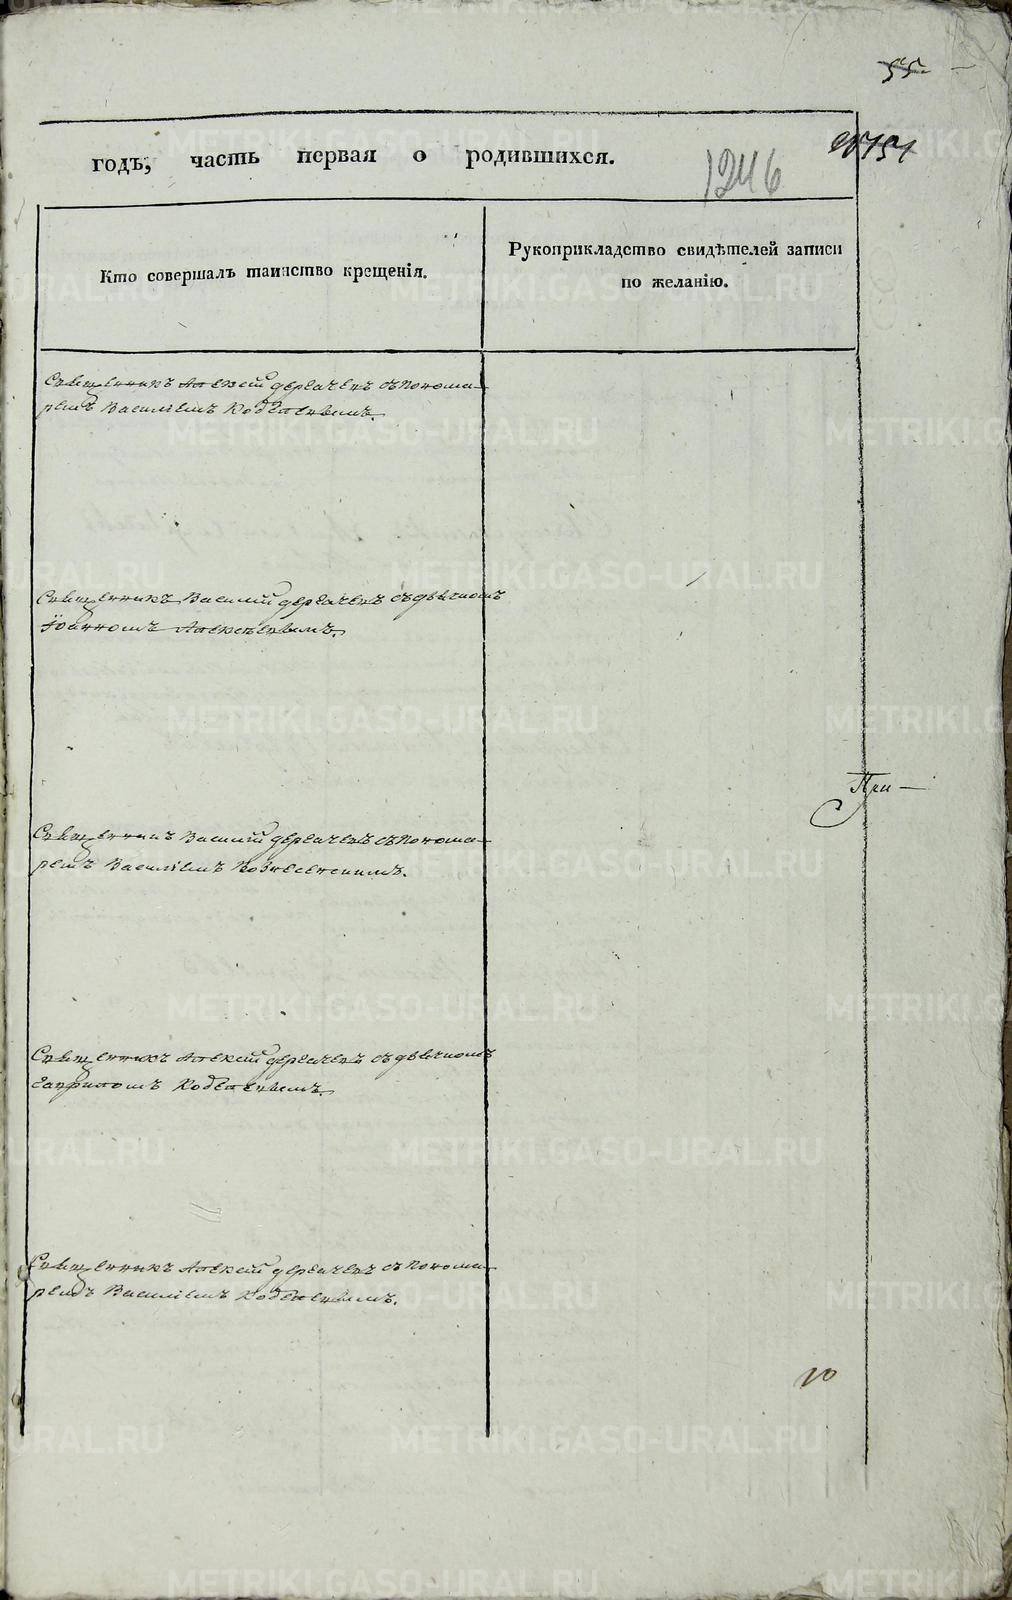 55
годъ, часть первая о родившихся.
1246
Кто совершалъ таинство крещенія.
Рукоприкладство свидѣтелей записи
по желанію.
Священникъ Алексѣй Дергачевъ съ понома-
ремъ Василіемъ
Священникъ Василій Дергачевъ съ дьячкомъ
Іоанномъ Алексѣевымъ.
При-
Священникъ Василій Дергачевъ съ понома-
ремъ Василіемъ Вознесенскимъ.
Священникъ Алексѣй Дергачевъ съ дьячкомъ
Гавриломъ
Священникъ Алексѣй Дергачевъ съ понома-
ремъ Василіемъ
METRIKI.GASO-URAL.RU